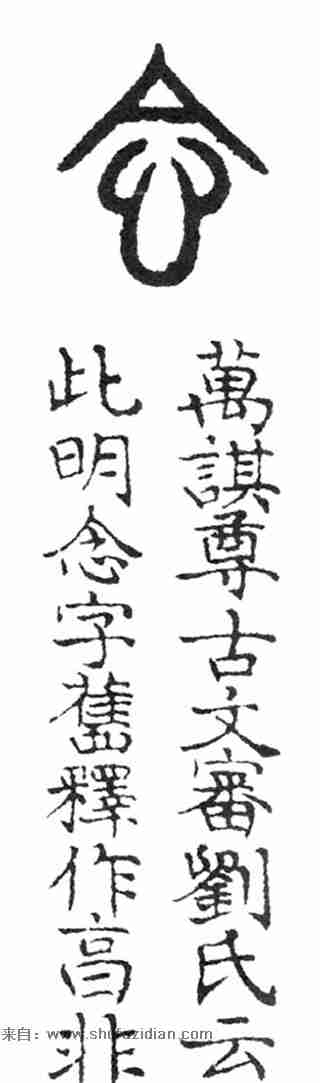 萬諆尊古文審劉氏云
此明念字舊釋作亯非
来自：www.shufazidian.com